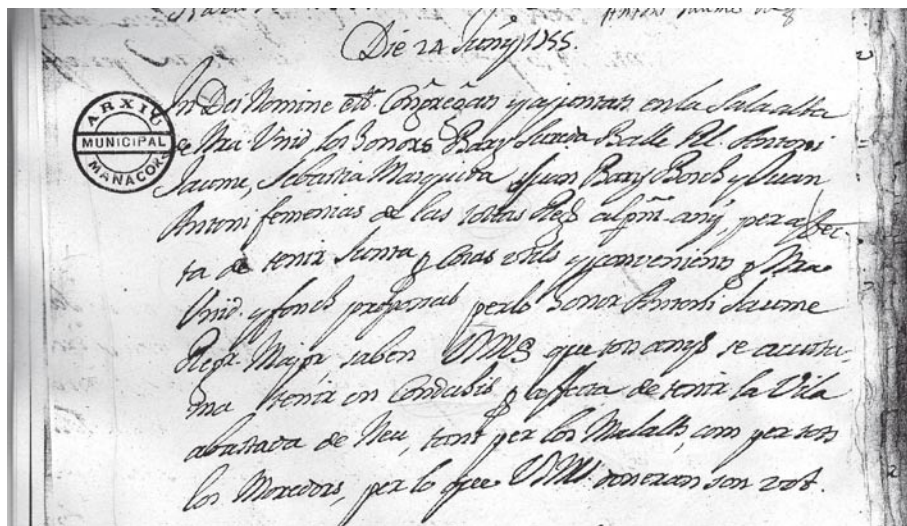 Die 24 Juny 1755.
ARXIU
MUNICIPAL
MANACOR
In Dei Nomine etc. Congregats y ajuntats en la Sala alta
de Nra. Unid. los honors Bary Sureda Balle Rl. Antoni
Jaume, Sebastia Marguida Juan Bary Bosch y Juan
Antoni femenias de las Regs al pnt. any, per affec-
ta de tenir Junta p. Cosas utils y convenients p. Nra.
Unid. y fonch proposat perlo honor Antoni Jaume
Regr. Major, saben VMS que ton anys se acustu-
ma tenir un Conductor p. affecta de tenir la Vila
abastada de Neu, tant per los Malalts, com per tots
los Moredors, per lo que VMS. doneran son vot.